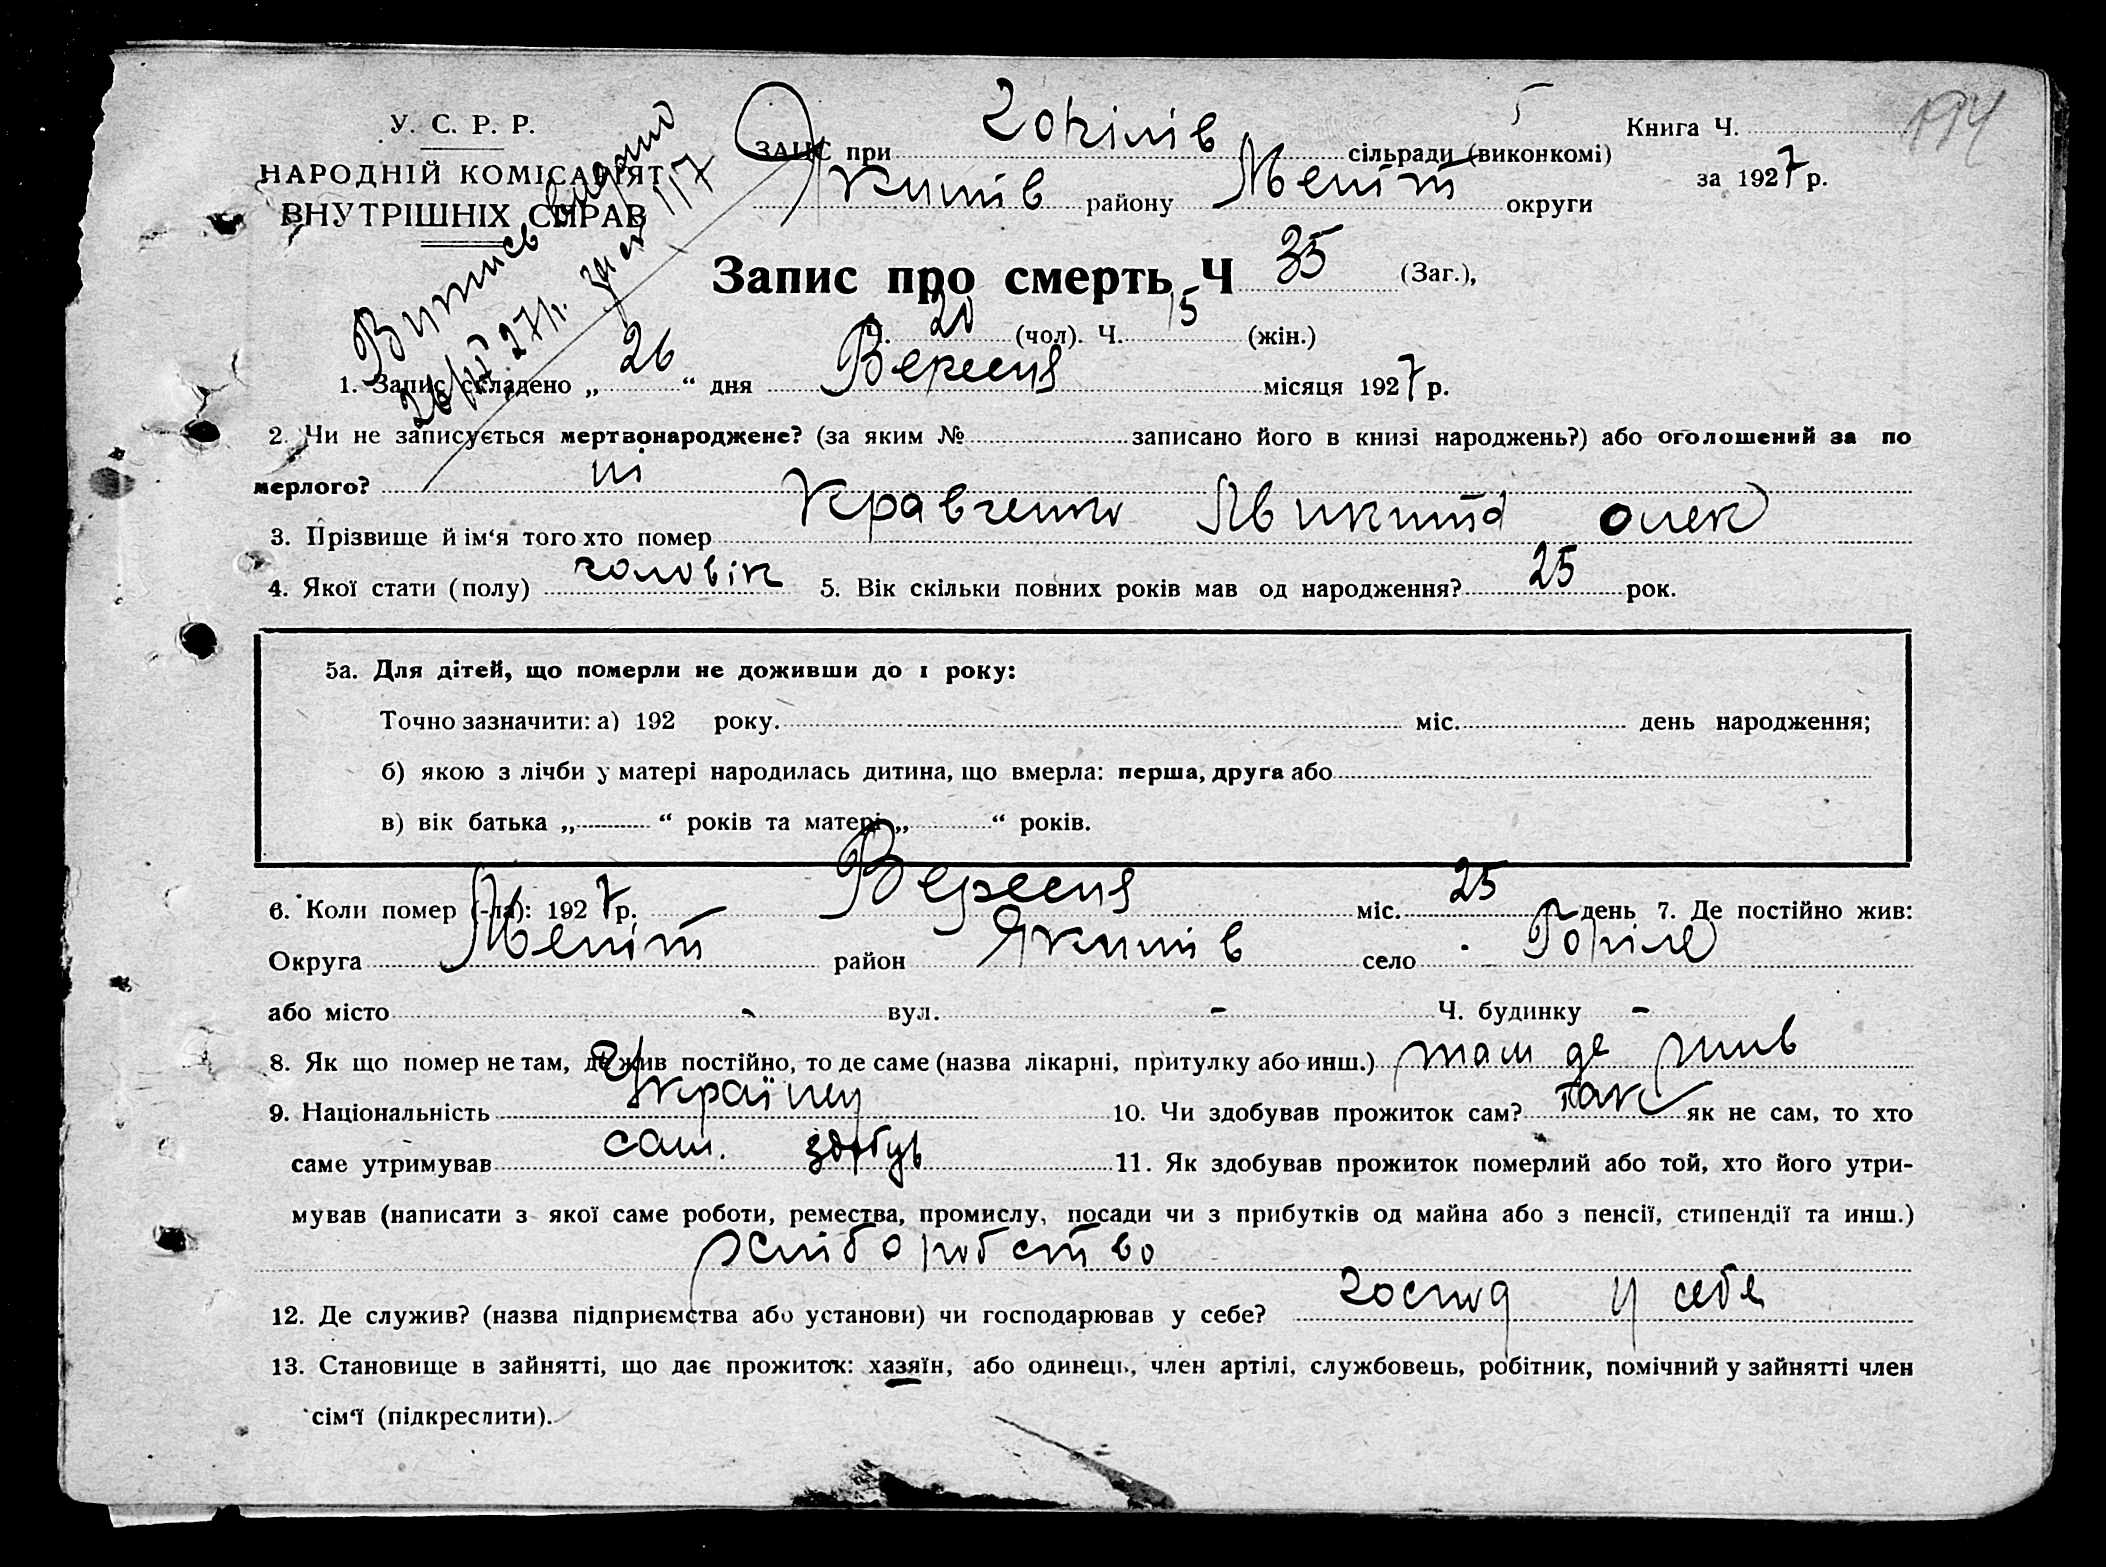 У. С. Р. Р.
НАРОДНІЙ КОМІСАРІЯТ
ВНУТРІШНІХ СПРАВ
Витись видано
26/IX 27 р. за № 117
Книга Ч. 194
ЗАПИС при Горілів сільради (виконкомі)
за 1927 р.
Якимів району Меліт округи
Запис про смерть Ч 35 (Заг.),
Ч. 20 (чол). Ч. 15 (жін.)
1. Запис складено „ 26 “ дня Вересня місяця 1927 р.
2. Чи не записується мертвонароджене? (за яким № записано його в книзі народжень?) або оголошений за по
мерлого? ні
3. Прізвище й ім‘я того хто помер Кравченко Микита Олек
4. Якої стати (полу) чоловік 5. Вік скільки повних років мав од народження? 25 рок.
5а. Для дітей, що померли не доживши до 1 року:
Точно зазначити: а) 192 року. міс. день народження;
б) якою з лічби у матері народилась дитина, що вмерла: перша, друга або
в) вік батька „ “ років та матері „ “ років.
6. Коли помер (-ла): 1927 р. Вересня міс. 25 день 7. Де постійно жив:
Округа Меліт район Якимів село Горіле
або місто - вул. - Ч. будинку -
8. Як що помер не там, де жив постійно, то де саме (назва лікарні, притулку або инш.) там де жив
9. Національність Українец 10. Чи здобував прожиток сам? так як не сам, то хто
саме утримував сам. здобув 11. Як здобував прожиток померлий або той, хто його утри-
мував (написати з якої саме роботи, ремества, промислу, посади чи з прибутків од майна або з пенсії, стипендії та инш.)
хліборобство
12. Де служив? (назва підприємства або установи) чи господарював у себе? господ у себе
13. Становище в зайнятті, що дає прожиток: хазяїн, або одинець, член артілі, службовець, робітник, помічний у зайнятті член
сім‘ї (підкреслити).